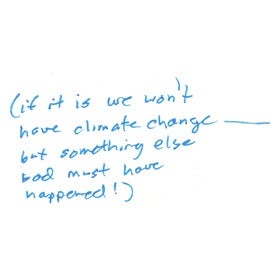 (if it is we won't
have climate change —
but something else
bad must have
happened!)